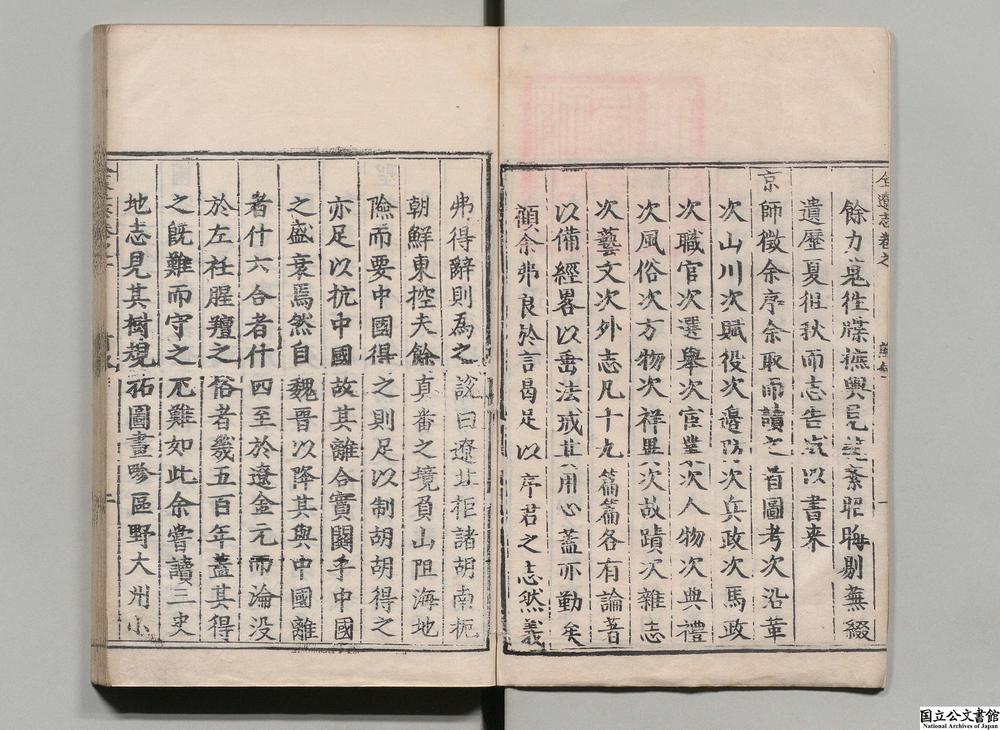 全遼志卷之
餘力蒐徃牒摭輿見纂紊昭晦剔蕪綴
遺歷夏徂秋而志告成以書来
京師徵余序余取而讀之首圖考次沿革
次山川次賦役次邊防次兵政次馬政
次職官次選舉次宦業次人物次典禮
次風俗次方物次祥異次故蹟次雜志
次藝文次外志凡十九篇篇各有論著
以備經畧以垂法戒其用心蓋亦勤矣
顧余弗良於言曷足以序君之志然義
弗得辭則為之說曰遼北拒諸胡南扼
朝鮮東控夫餘真番之境負山阻海地
險而要中國得之則足以制胡胡得之
亦足以抗中國故其離合實關乎中國
之盛衰焉然自魏晋以降其與中國離
者什六合者什四至於遼金元而淪没
於左衽腥羶之俗者幾五百年蓋其得
之旣難而守之不難如此余嘗讀三史
地志見其樹規拓圖畫畛區野大州小
国立公文書館
National Archives of Japan